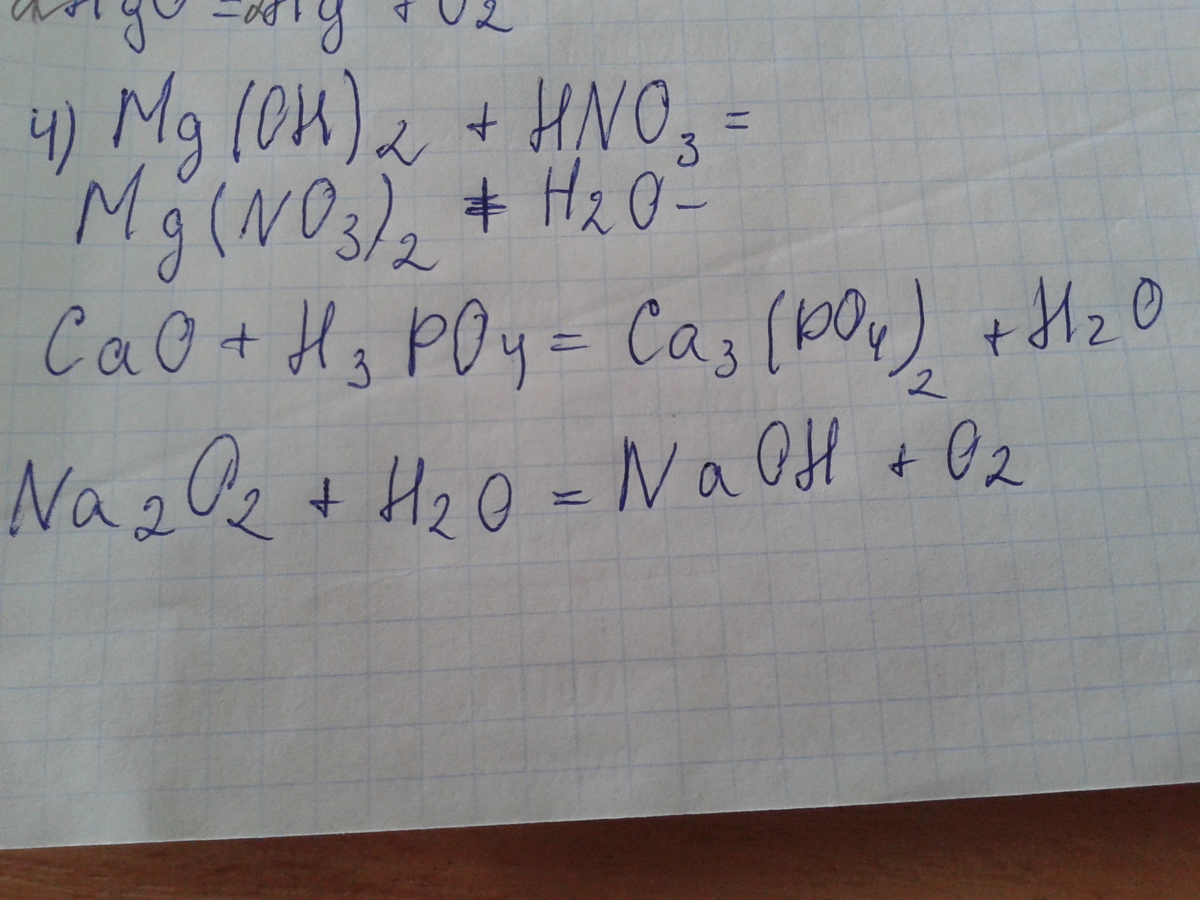 2HgO = 2Hg + O2
4) Mg(OH)2 + HNO3 =
Mg(NO3)2 + H2O -
CaO + H3PO4 = Ca3(PO4)2 + H2O
Na2O2 + H2O = NaOH + O2